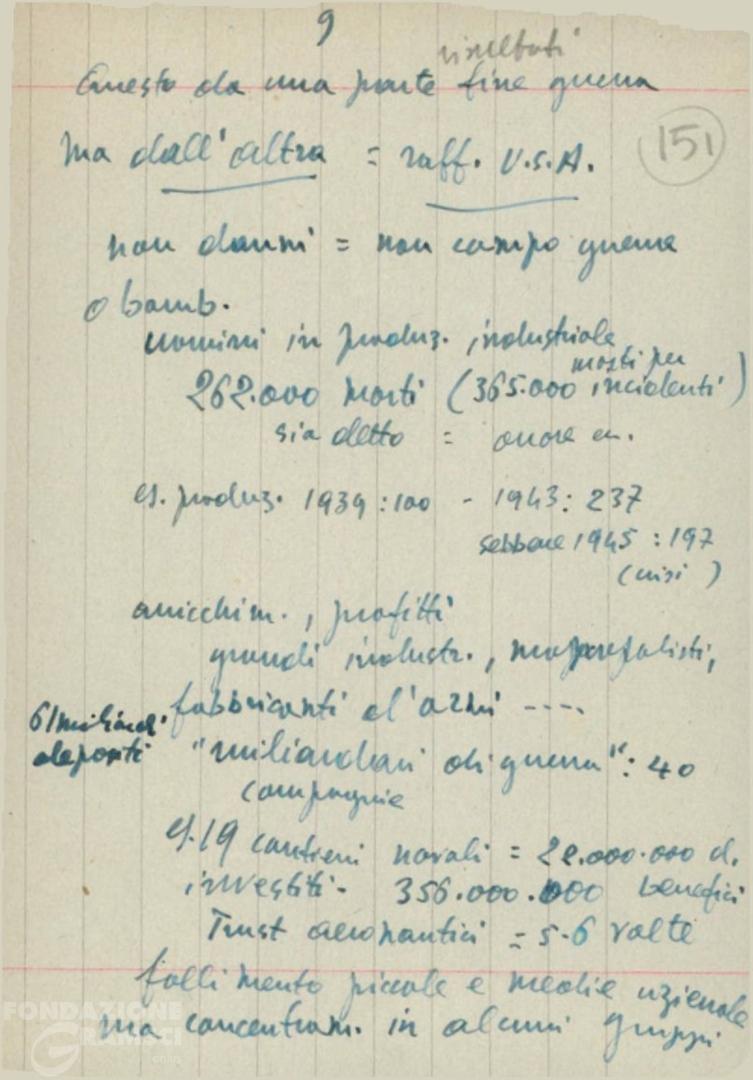 9
risultati
Questo da una parte fine guerra
151
ma dall'altra = raff. U.S.A.
non danni = non campo guerra
o bomb.
uomini in produz. industriale
262.000 morti (365.000 morti per incidenti)
sia detto = onore
es. produz. 1939:100 - 1943:237
sebbene 1945:197
(crisi)
arricchim., profitti
grandi industr., monopolisti,
fabbricanti d'armi ----
61 miliardi
depositi
"miliardari di guerra": 40
compagnie
es. 19 cantieri navali = 22.000.000 d.
investiti - 356.000.000 benefici
Trust aeronautici = 5-6 volte
fallimento piccole e medie aziende
ma concentram. in alcuni gruppi
FONDAZIONE
GRAMSCI
onlus